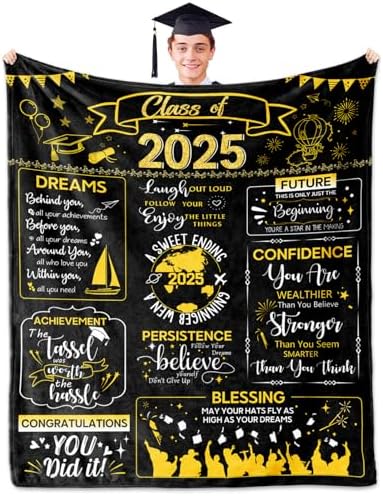 Class of
2025
DREAMS
Behind you,
all your achievements
Before you,
all your dreams
Around You,
all who love you
Within you,
all you need
Laugh OUT LOUD
FOLLOW YOUR
Enjoy THE LITTLE
THINGS
FUTURE
THIS IS ONLY JUST THE
Beginning
YOU'RE A STAR IN THE MAKING
A SWEET ENDING
2025
A NEW BEGINNING
CONFIDENCE
You Are
WEALTHIER
Than You Believe
Stronger
Than You Seem
SMARTER
Than You Think
ACHIEVEMENT
The
tassel
was
worth
the
hassle
PERSISTENCE
Follow Your
Dreams
believe
yourself
Don't Give Up
CONGRATULATIONS
YOU
Did it!
BLESSING
MAY YOUR HATS FLY AS
HIGH AS YOUR DREAMS